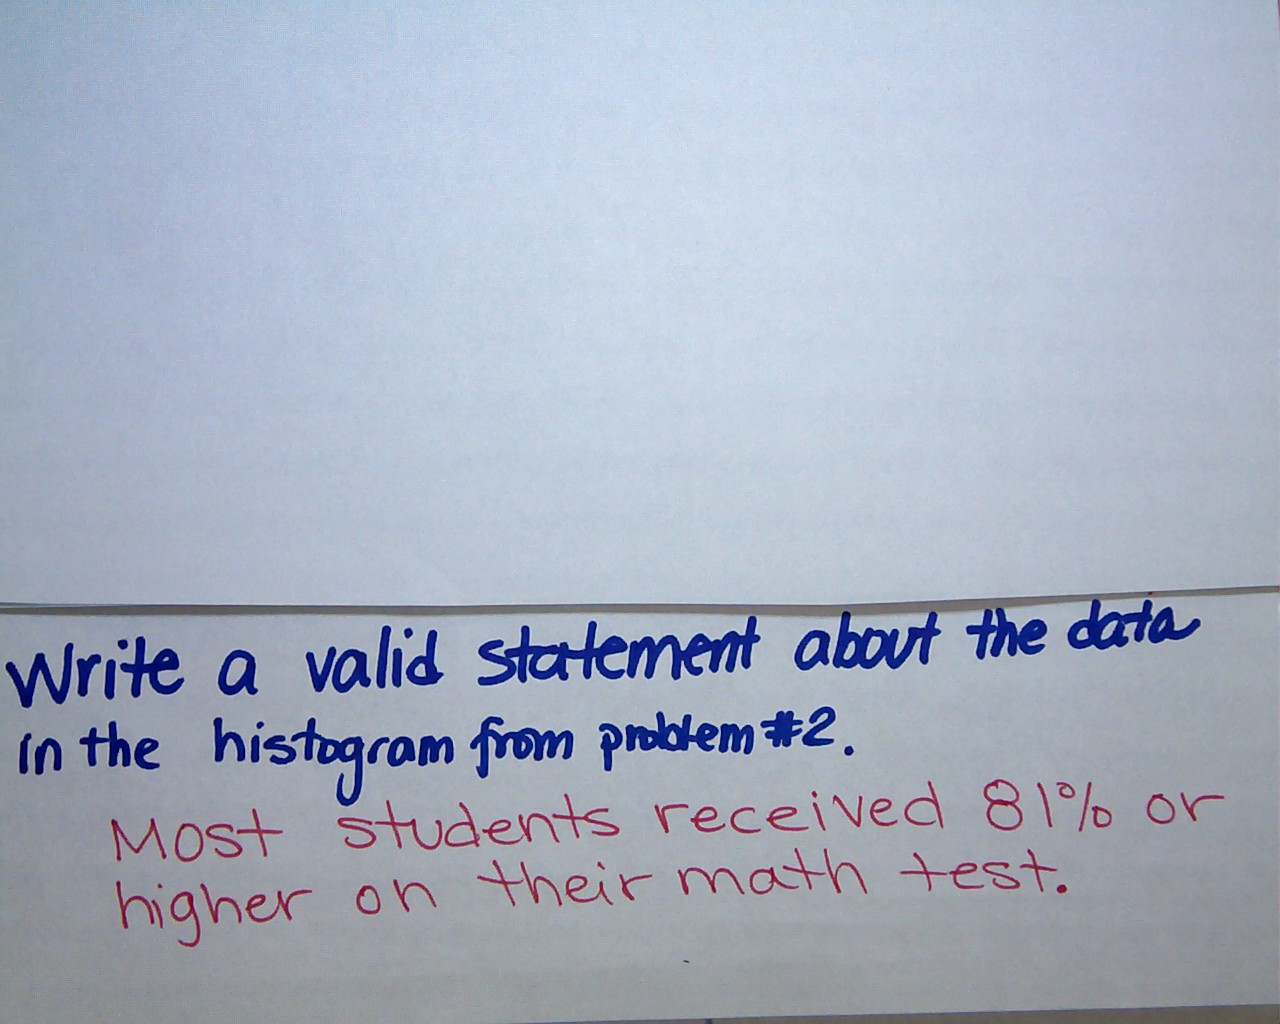 Write a valid statement about the data
in the histogram from problem #2.
Most students received 81% or
higher on their math test.